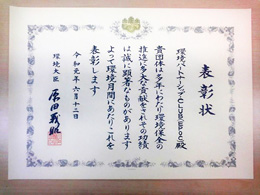 表彰状
環境パートナーシップCLUB(EPOC)殿
貴団体は多年にわたり環境保全の
推進に多大な貢献をされその功績
は誠に顕著なものがあります
よって環境月間にあたりこれを
表彰します
令和元年六月十二日
環境大臣 原田義昭